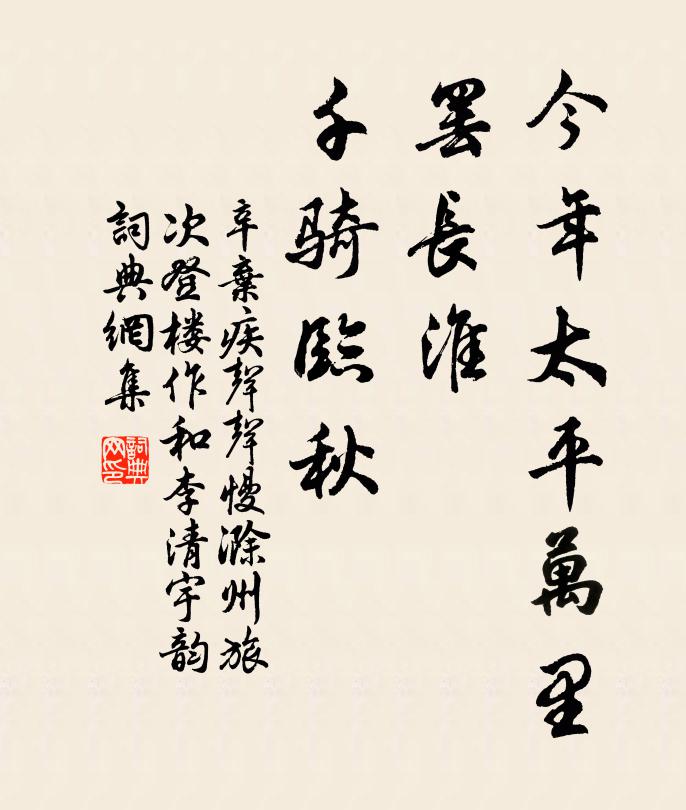 今年太平萬里
罷長淮
千騎臨秋
辛棄疾聲聲慢滁州旅
次登楼作和李清宇韵
詞典網集
詞典
网印